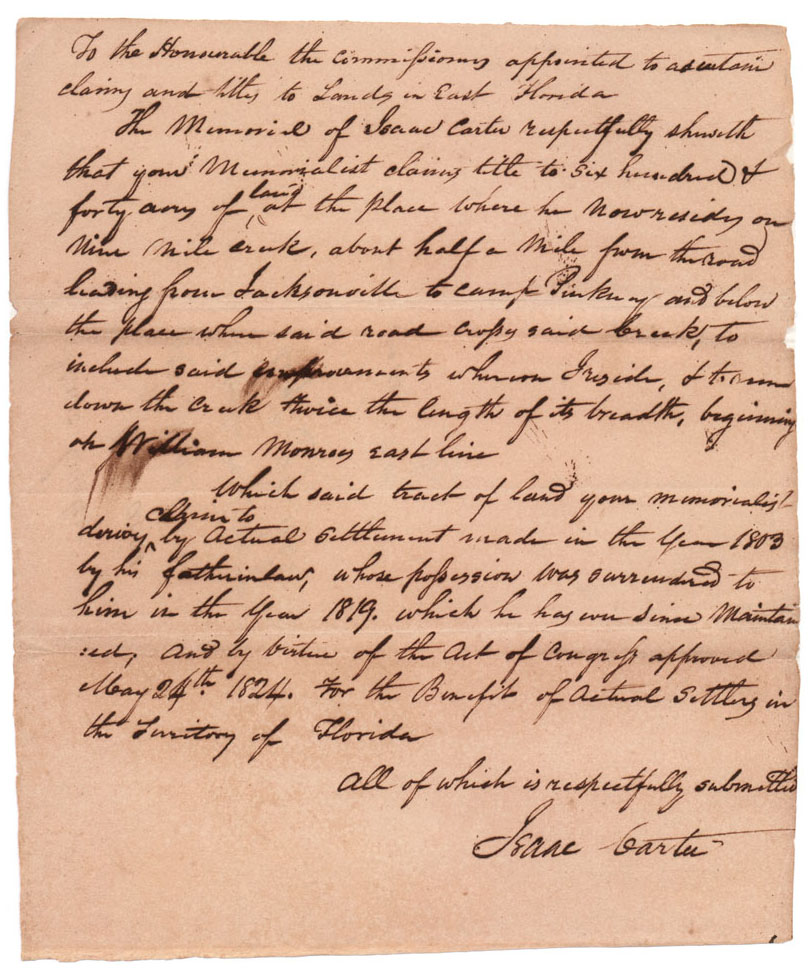 To the Honourable the commissioners appointed to ascertain
claims and titles to Lands in East Florida
The Memorial of Isaac Carter respectfully sheweth
that your Memorialist claims title to six hundred &
forty acres of land at the place where he now resides on
Nine mile creek, about half a mile from the road
leading from Jacksonville to camp Pinkney and below
the place where said road crosses said creek, to
include said improvements whereon I reside, & to run
down the creek twice the length of its breadth, beginning
on William Monroes east line
Which said tract of land your memorialist
derives claim to by Actual settlement made in the Year 1803
by his fatherinlaw, whose possession was surrendered to
him in the Year 1819. which he has ever since Maintain
:ed, and by virtue of the Act of Congress approved
May 24th. 1824. For the Benefit of Actual Settlers in
the Territory of Florida
All of which is respectfully submitted
Isaac Carter